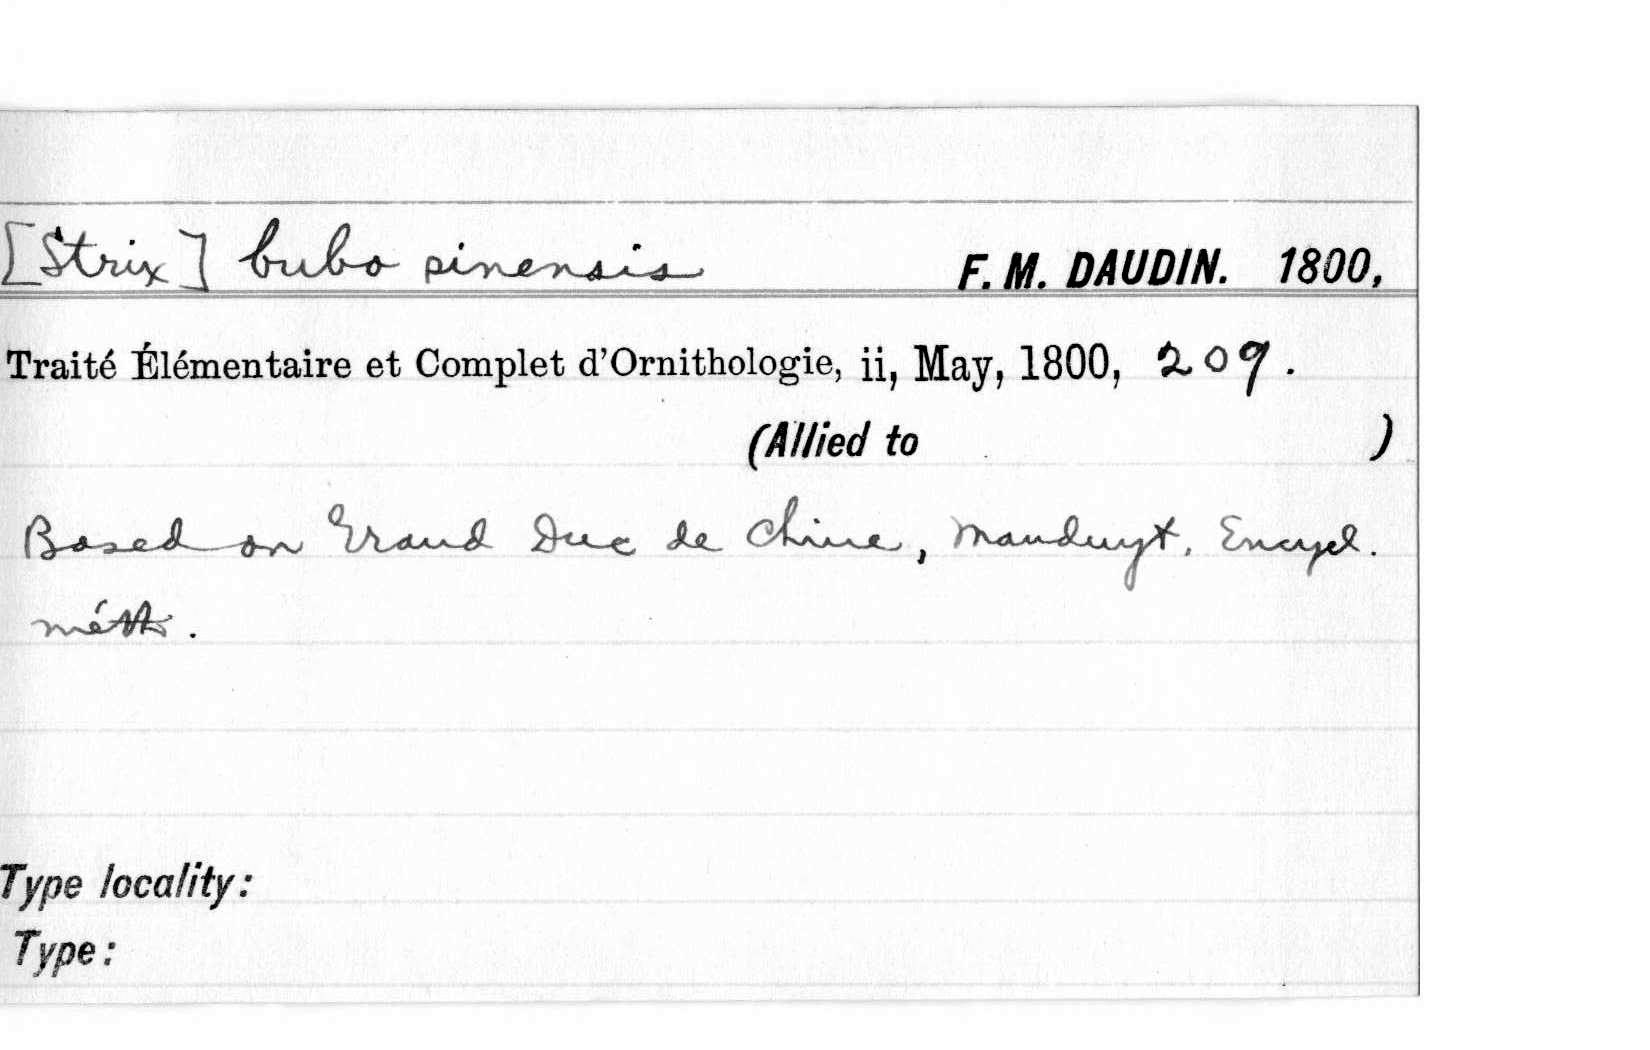 [Strix] bubo sinensis F. M. DAUDIN. 1800,
Traité Élémentaire et Complet d'Ornithologie, ii, May, 1800, 209.
(Allied to )
Based on Grand Duc de Chine, Mauduyt, Encycl.
méth.
Type locality:
Type: